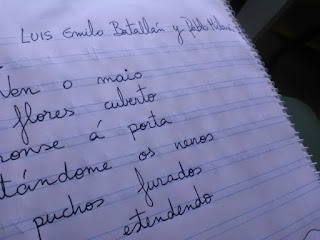 LUIS Emilo Batallán y Pablo
ven o maio
flores cuberto
ronse á porta
tándome os nenos
puchos furados
estendendo